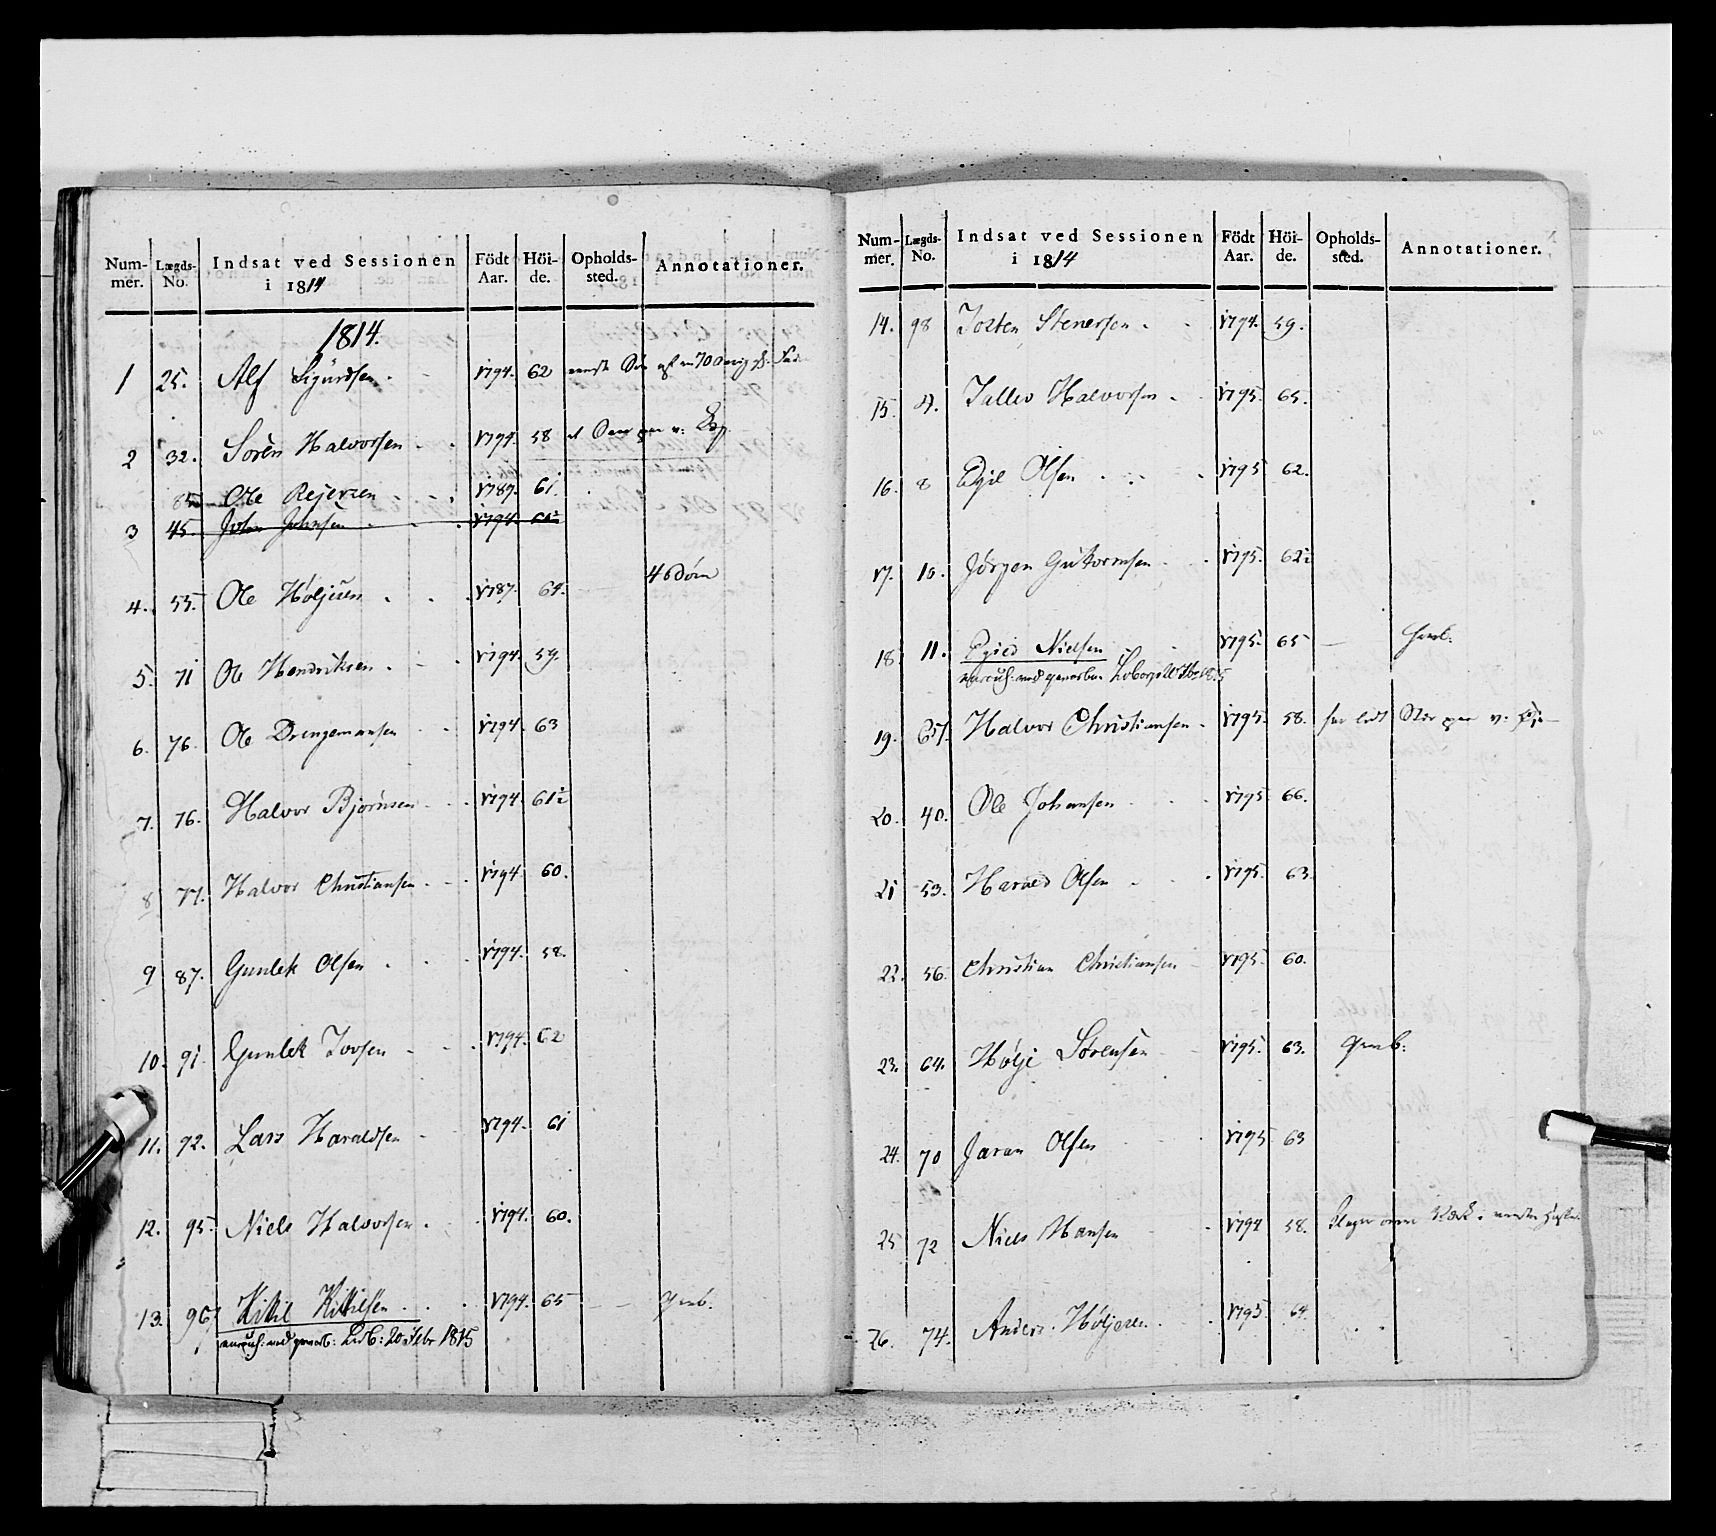 Num-mer. Lægds-No. Indsat ved Sessionen i 1814 Födt Aar. Höi-de. Opholds-sted. Annotationer.
1814.
1 25. Alf Sigurdsen 1794. 62
2 32. Sören Halvorsen 1794. 58
85 Ole Rejersen 1787. 61
3 45. John Johnsen 1794.
4. 55. Ole Höljesen 1787. 64. 4 Börn
5. 71 Ole Hendriksen 1794. 59.
6. 76. Ole Drengemansen 1794. 63
7. 76. Halvor Björnsen 1794. 61½
8 77. Halvor Christiansen 1794 60.
9 87. Gunlek Olsen 1794. 58.
10. 91. Gunlek Tovsen 1794. 62
11. 92. Lars Haraldsen 1794. 61
12. 95. Niels Halvorsen 1794. 60.
13. 96 Kittil Kittilsen 1794. 65
20 Febr 1815
Num-mer. Lægds-No. Indsat ved Sessionen i 1814 Födt Aar. Höi-de. Opholds-sted. Annotationer.
14. 98 Tosten Stenersen 1794. 59.
15. 4. Tallev Halvorsen 1795. 65.
16. 8 Egil Olsen 1795 62.
17. 10. Jörgen Guttormsen 1795. 62½
18. 11. Nielsen 1795. 65
19. Halvor Christiansen 1795. 58.
20. 40. Ole Johansen 1795 66.
21 53. Harald Olsen 1795. 63.
22. 56. Christian Christiansen 1795. 60.
23. 64. Hölje Sörensen 1795. 63.
24. 70 Jaran Olsen 1795 63
25 72 Niels Hansen 1794 58.
26. 74. Anders Höljesen 1795 64.